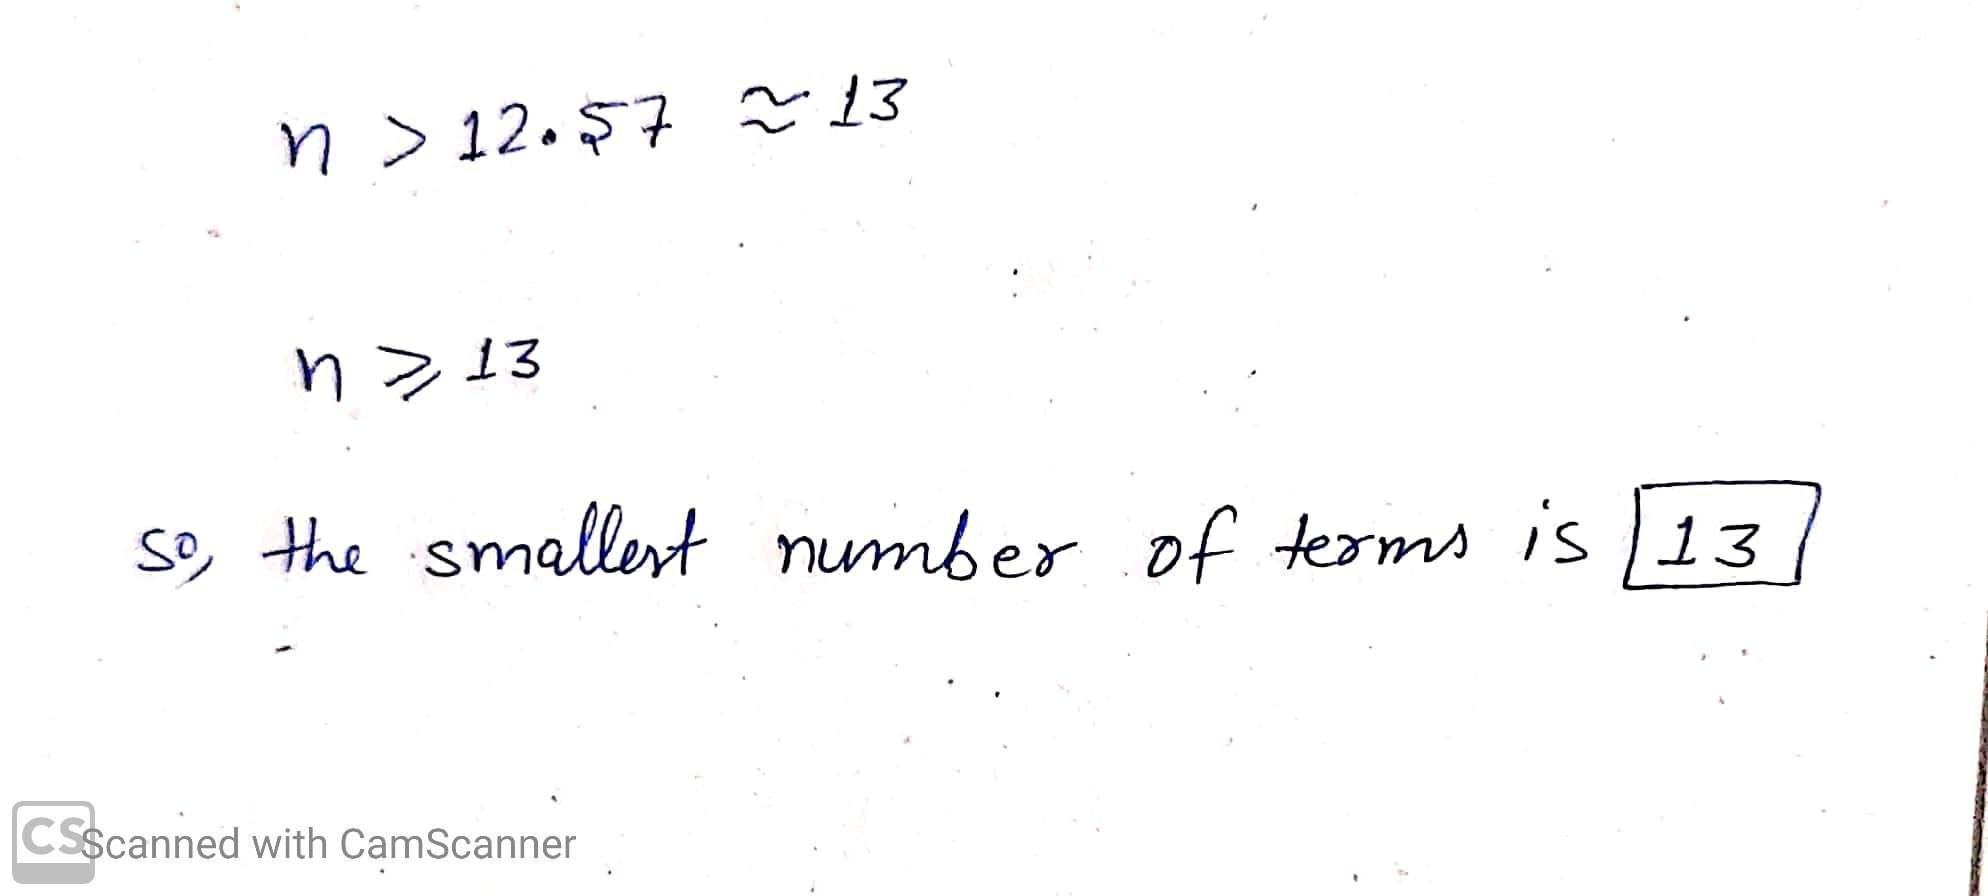 n > 12.57 ≈ 13
n ⩾ 13
so, the smallest number of terms is 13
CS Scanned with CamScanner